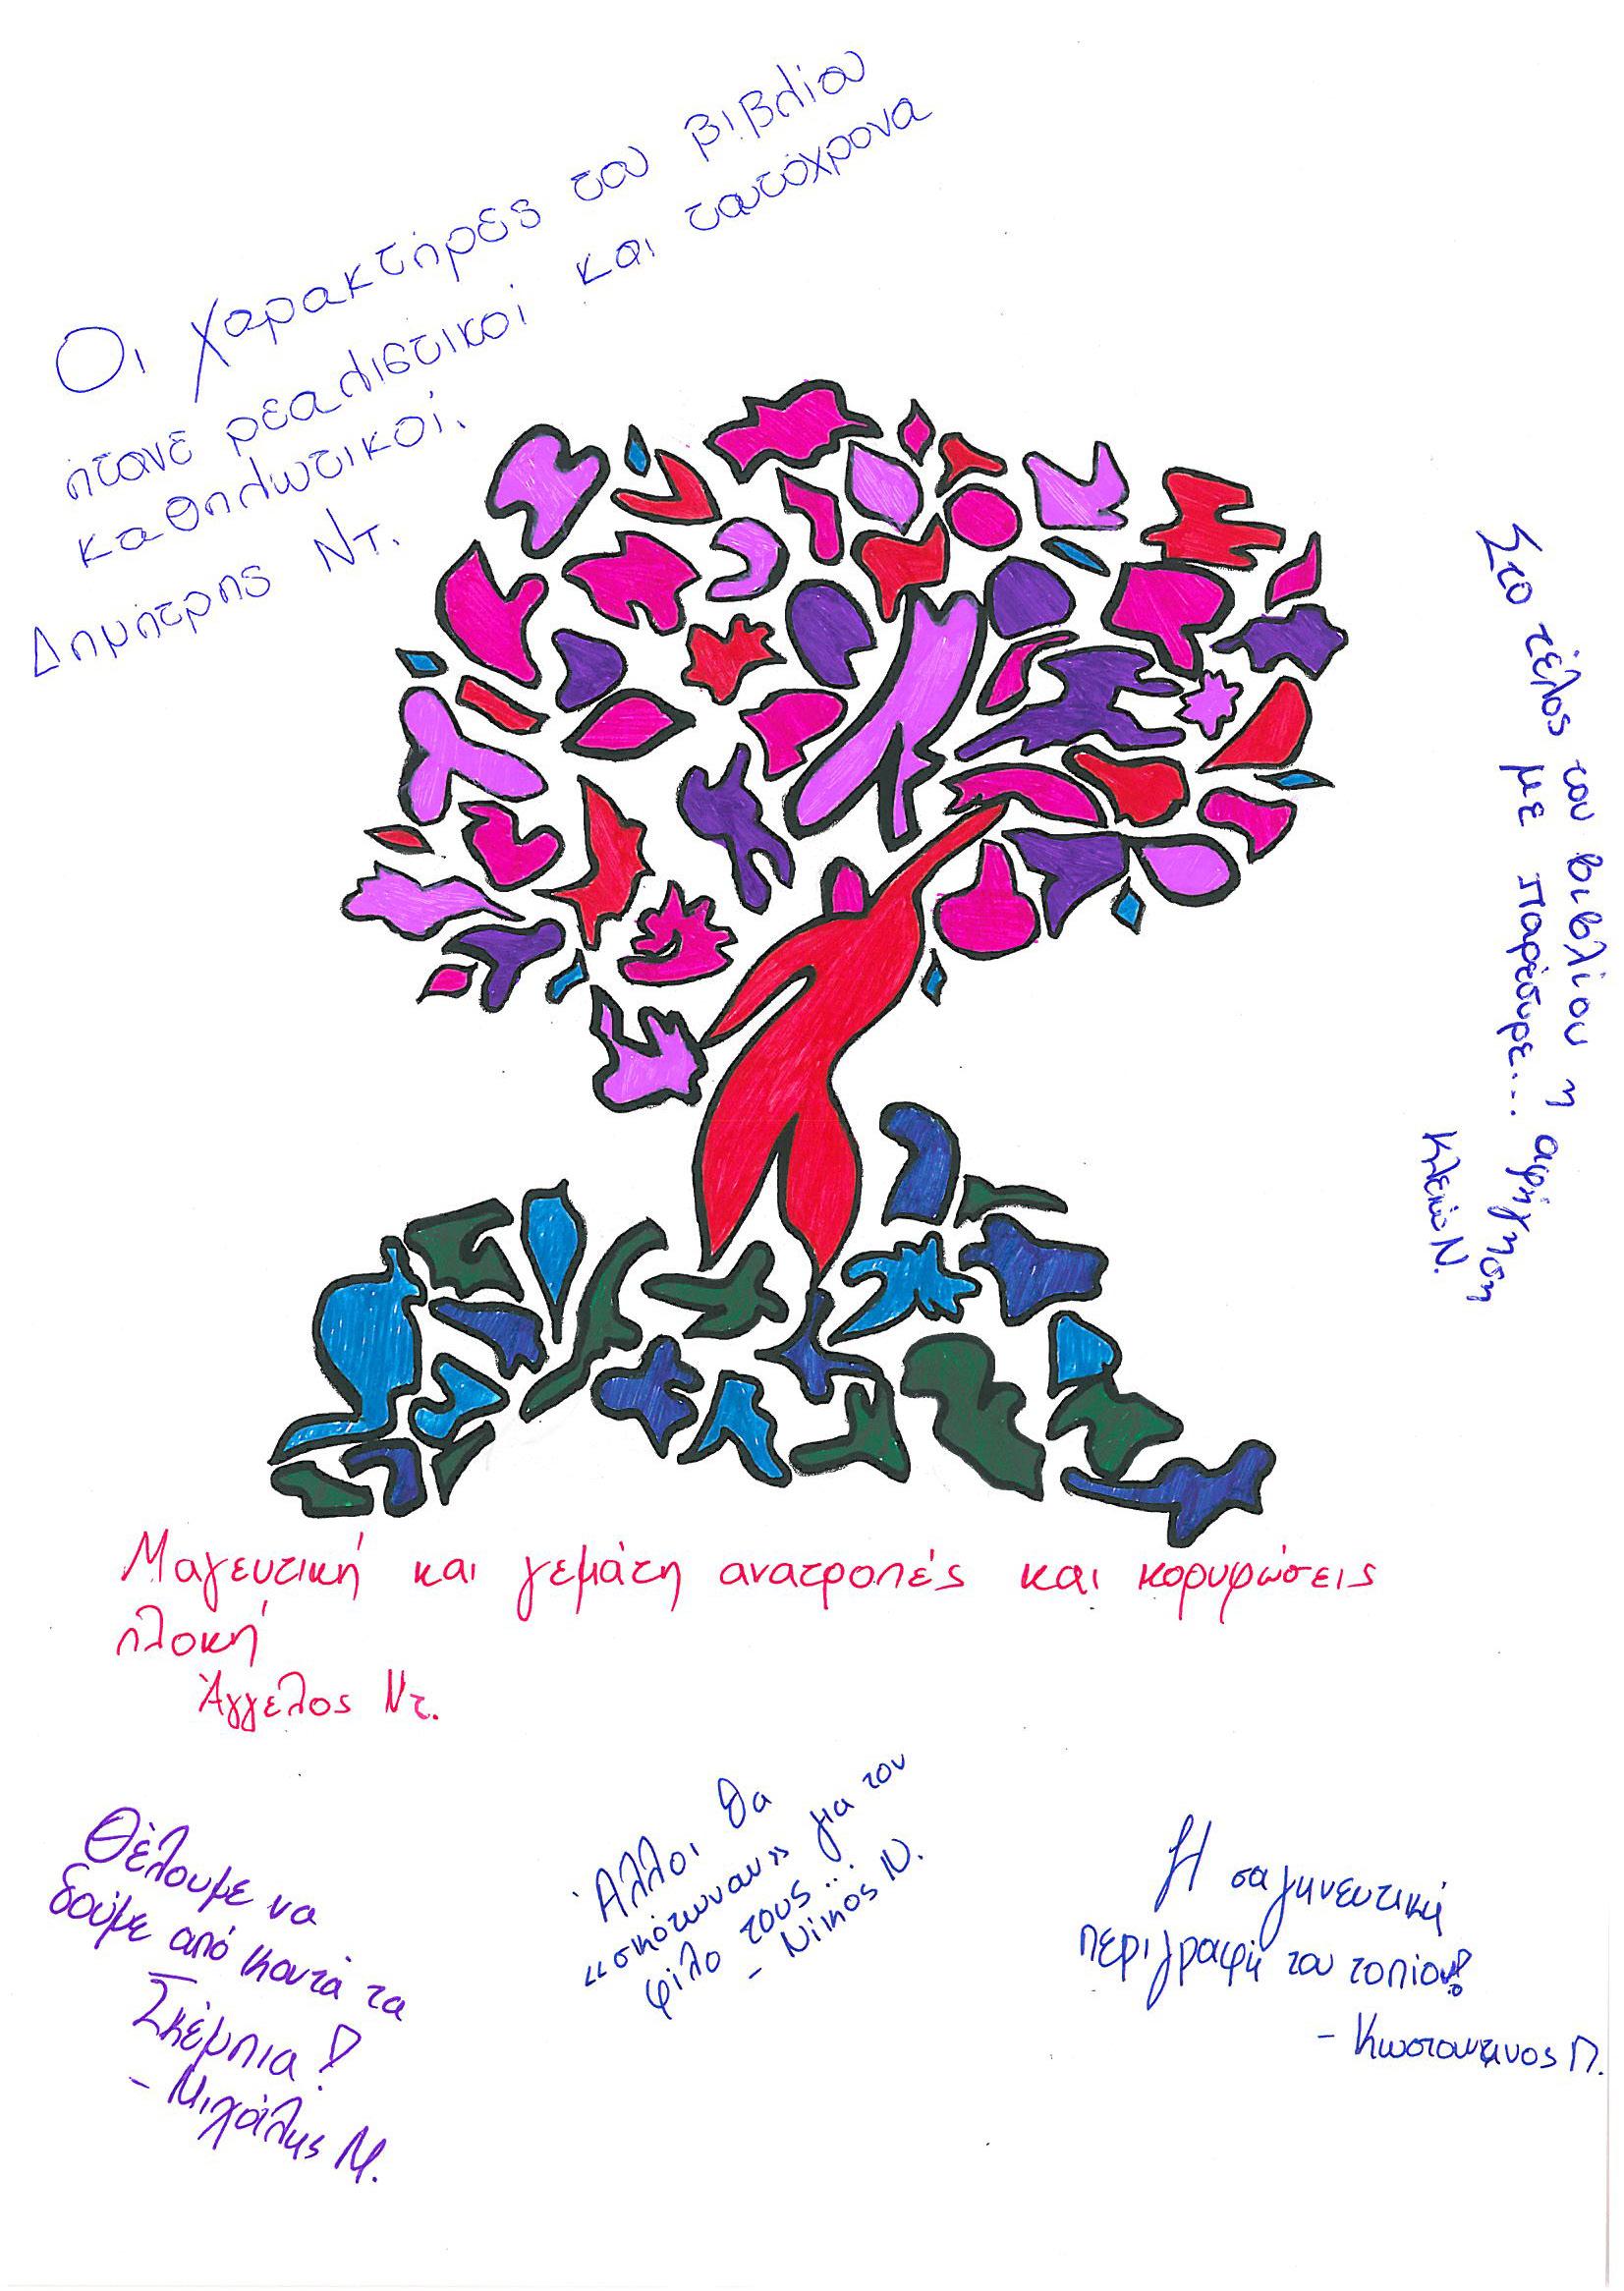 Οι χαρακτήρες του βιβλίου
ήτανε ρεαλιστικοί και ταυτόχρονα
καθηλωτικοί.
Δημήτρης Ντ.
Στο τέλος του βιβλίου η αφήγηση
με παρέσυρε...
Κλειώ Ν.
Μαγευτική και γεμάτη ανατροπές και κορυφώσεις
πλοκή
Άγγελος Ντ.
Θέλουμε να
δούμε από κοντά τα
Σκέμπια!
- Μιχάλης Μ.
Άλλοι θα
«σκότωναν» για τον
φίλο τους...
- Νίκος Ν.
Η σαγηνευτική
περιγραφή του τοπίου!
- Κωσταντινος Π.